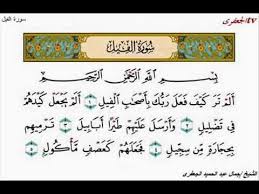 ٤٧ الجعفري
سورة الفيل
سُورَةُ الْفِيلِ
بِسْمِ اللَّهِ الرَّحْمَٰنِ الرَّحِيمِ
أَلَمْ تَرَ كَيْفَ فَعَلَ رَبُّكَ بِأَصْحَابِ الْفِيلِ ١ أَلَمْ يَجْعَلْ كَيْدَهُمْ
فِي تَضْلِيلٍ ٢ وَأَرْسَلَ عَلَيْهِمْ طَيْرًا أَبَابِيلَ ٣ تَرْمِيهِم
بِحِجَارَةٍ مِّن سِجِّيلٍ ٤ فَجَعَلَهُمْ كَعَصْفٍ مَّأْكُولٍ ٥
الشيخ/جمال عبد الحميد الجعفري